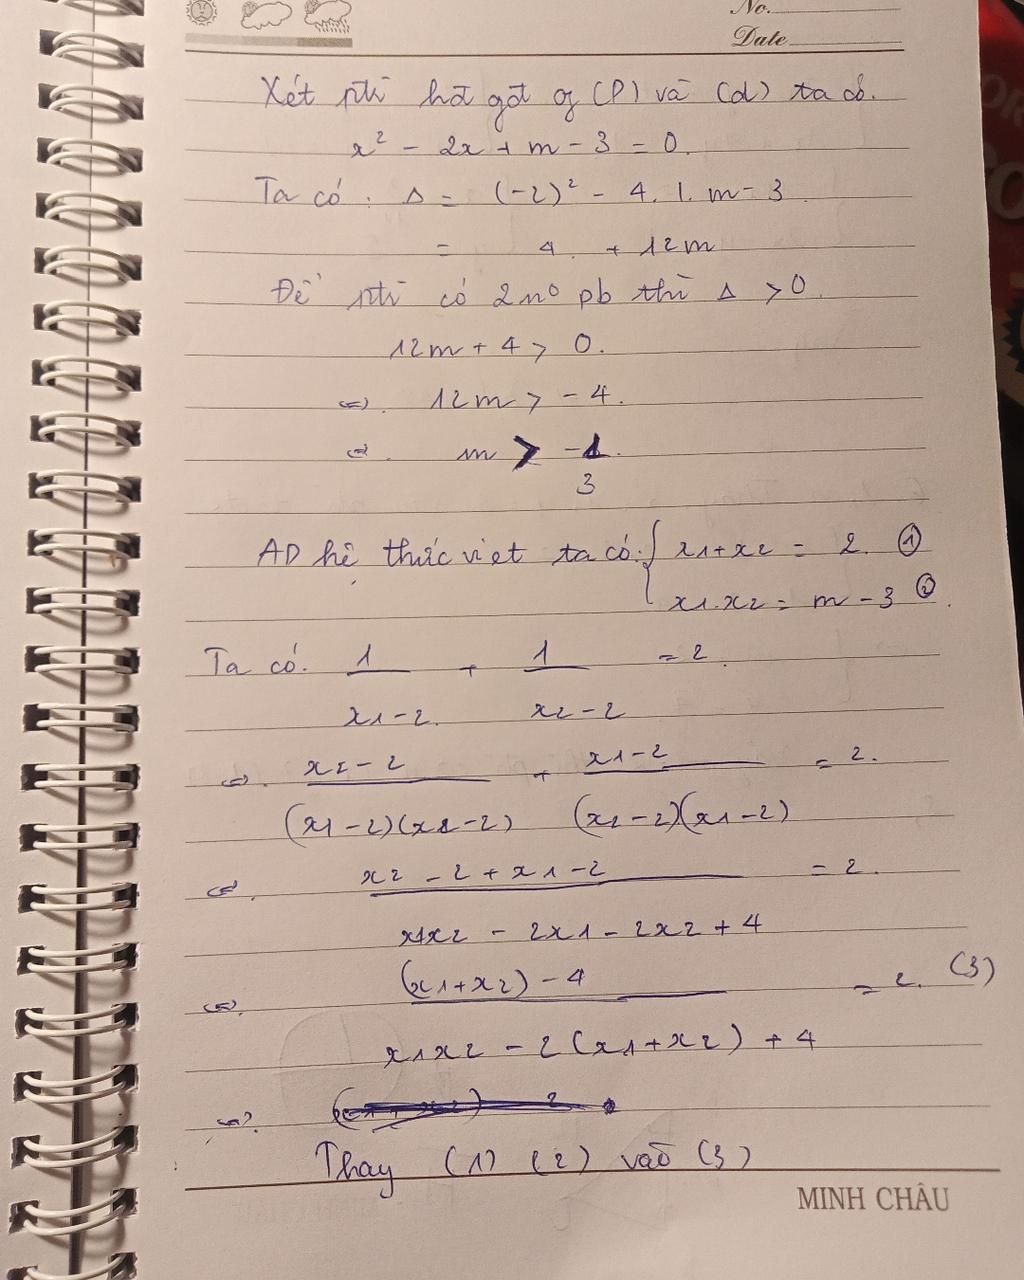 No.
Date
Xét pt hđ gđ of (P) và (d) ta có.
x² - 2x + m - 3 = 0.
Ta có: Δ = (-2)² - 4.1.m - 3
= 4 + 12m
Để pt có 2 n⁰ pb thì Δ > 0.
12m + 4 > 0.
<=>. 12m > -4.
<=>. m > -1/3
AD hê thức viet ta có: { x1+x2 = 2. ①
x1.x2 = m - 3 ②.
Ta có. 1/(x1-2) + 1/(x2-2) = 2.
<=>. (x2-2)/((x1-2)(x2-2)) + (x1-2)/((x2-2)(x1-2)) = 2.
<=>. (x2 - 2 + x1 - 2)/(x1x2 - 2x1 - 2x2 + 4) = 2.
<=>. ((x1+x2) - 4)/(x1x2 - 2(x1+x2) + 4) = 2. (3)
<=>.
Thay (1) (2) vào (3)
MINH CHÂU